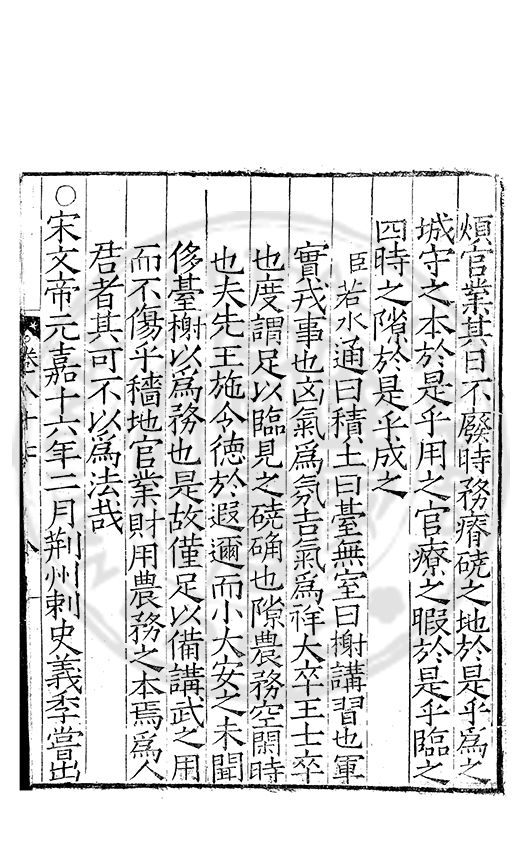 煩官業其日不廢時務瘠磽之地於是乎爲之
城守之本於是乎用之官療之暇於是乎臨之
四時之隙於是乎成之
臣若水通曰積土曰臺無室曰榭講習也軍
實戎事也凶氣爲氛吉氣爲祥大卒王士卒
也度謂足以臨見之磽确也隙農務空閑時
也夫先王施令徳於遐邇而小大安之未聞
侈臺榭以爲務也是故僅足以備講武之用
而不傷乎穡地官業財用農務之本焉爲人
君者其可不以爲法哉
○宋文帝元嘉十六年二月荆州刺史義季嘗出